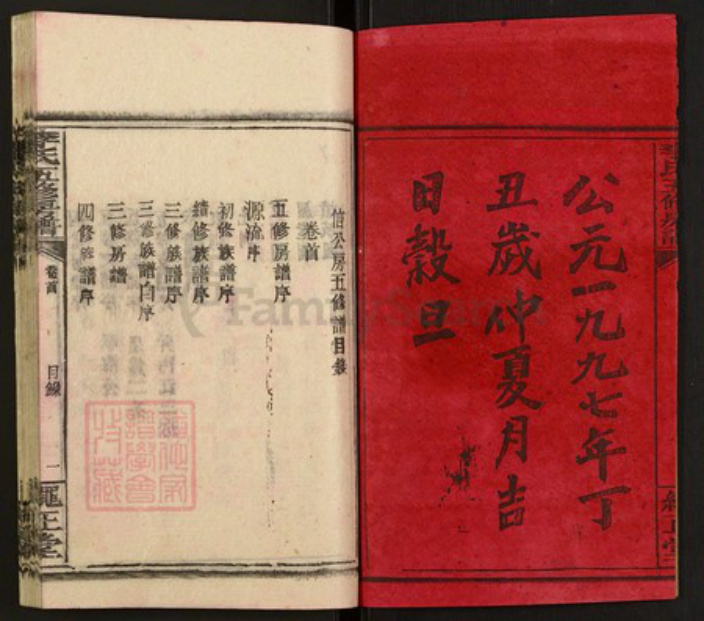 公元一九九七年丁
丑歲仲夏月吉
日穀旦
信公房五修譜目錄
卷首
五修房譜序
源流序
初修族譜序
續修族譜序
三修族譜序
三修族譜自序
三修房譜
四修族譜序
李氏五修房譜
卷首
目錄
一